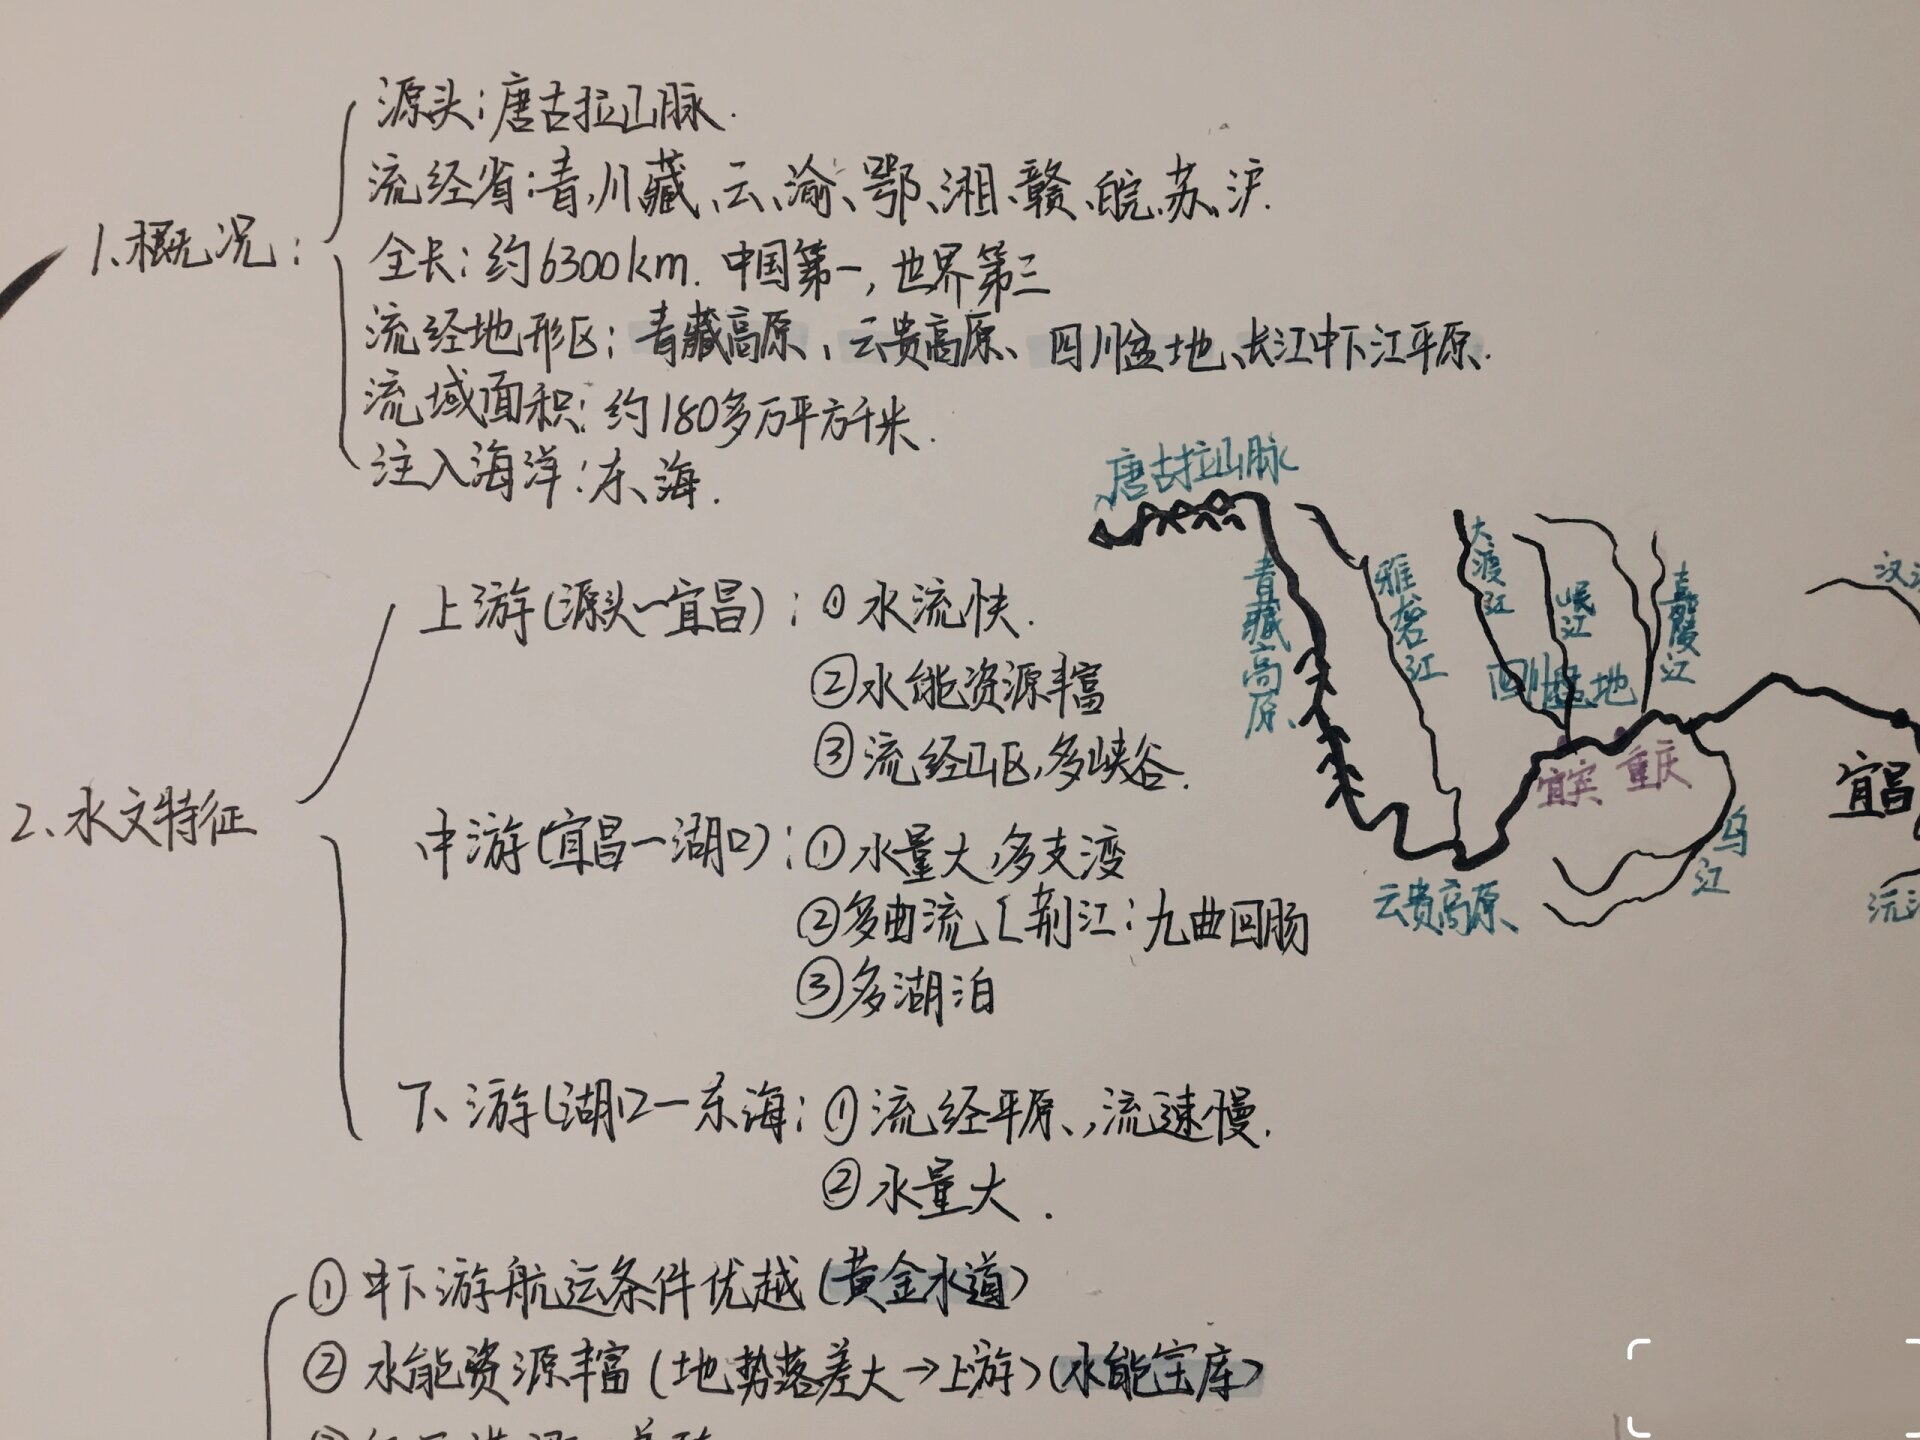 1、概况：
源头：唐古拉山脉.
流经省：青、川藏、云、渝、鄂、湘、赣、皖、苏、沪.
全长：约6300km. 中国第一，世界第三
流经地形区：青藏高原、云贵高原、四川盆地、长江中下江平原.
流域面积：约180多万平方千米.
注入海洋：东海.
唐古拉山脉
青藏高原
雅砻江
大渡江
岷江
嘉陵江
四川盆地
宜宾 重庆
宜昌
乌江
云贵高原
2、水文特征
上游(源头—宜昌)：①水流快.
②水能资源丰富
③流经山区,多峡谷.
中游(宜昌—湖口)：①水量大,多支湾
②多曲流[荆江：九曲回肠
③多湖泊
下游(湖口—东海：①流经平原,流速慢.
②水量大.
①中下游航运条件优越(黄金水道)
②水能资源丰富(地势落差大→上游)(水能宝库)